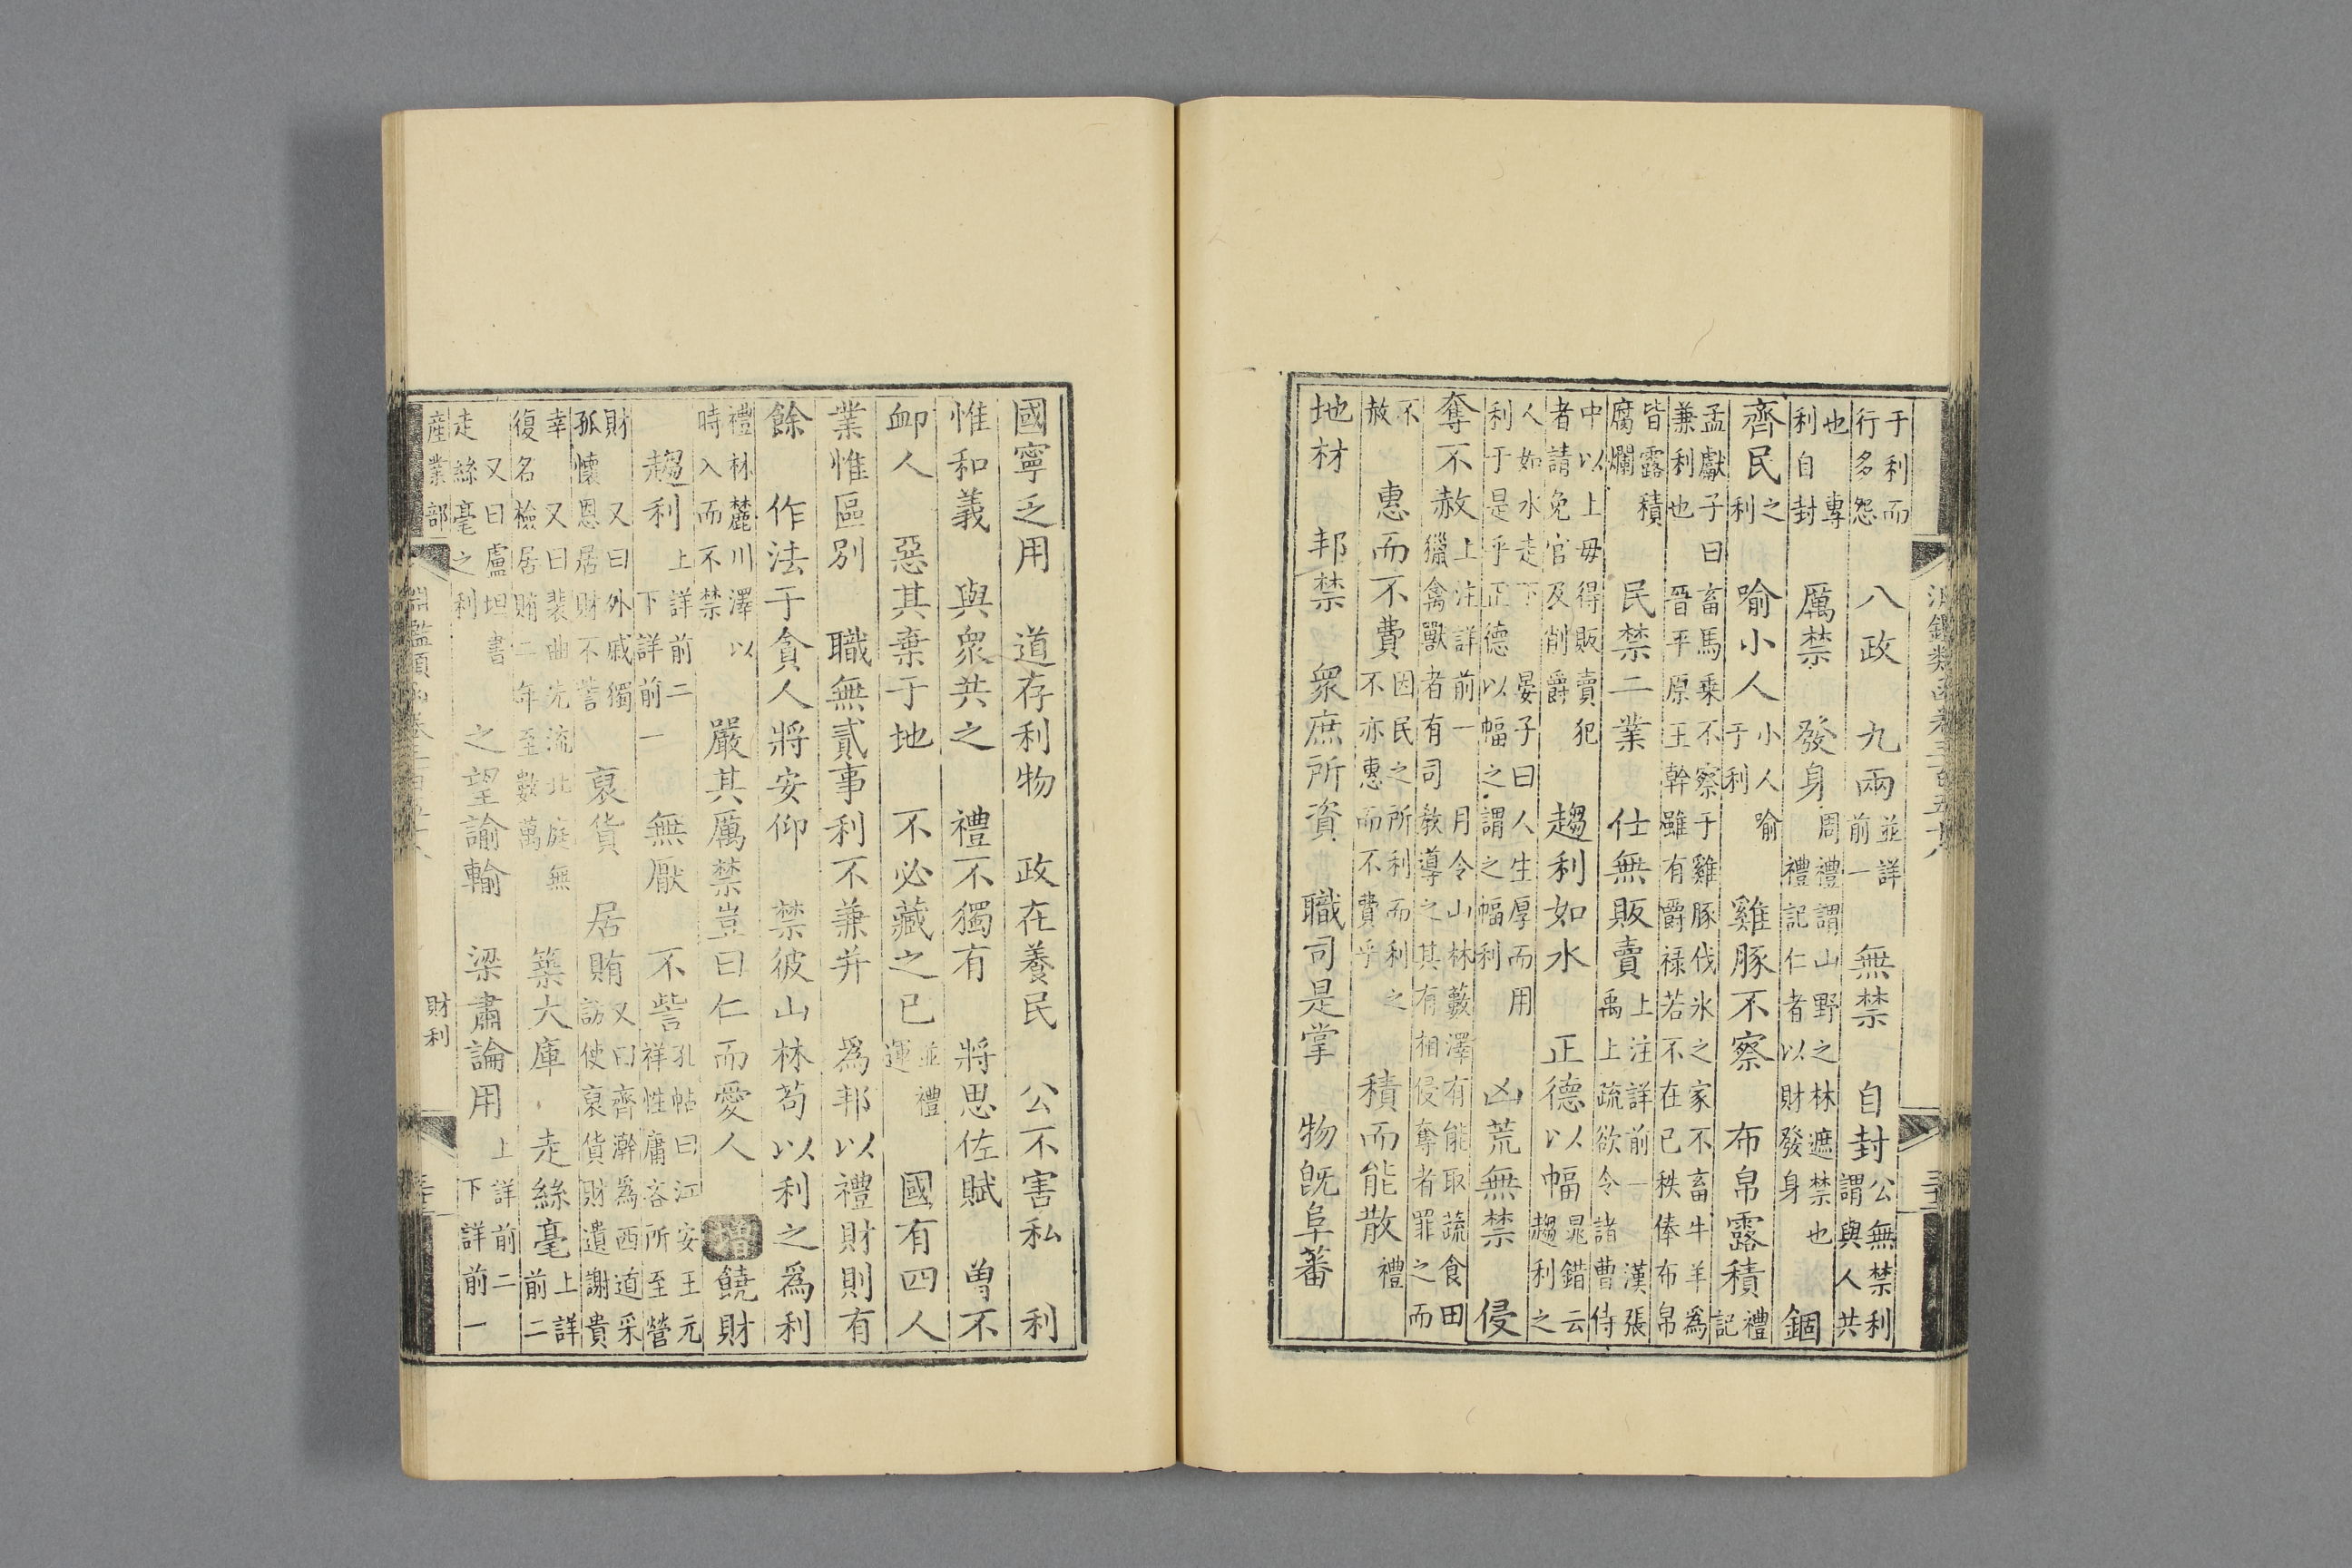 于利而行多怨 八政 九兩 並詳前一 無禁 自封 公無禁利謂與人共
也 專利自封 厲禁 發身 周禮謂山野之林遮禁也禮記仁者以財發身 錮
齊民 之利 喻小人 小人喻于利 雞豚不察 布帛露積 禮記
孟獻子曰畜馬乘不察于雞豚伐氷之家不畜牛羊爲兼利也 晉平原王幹雖有爵禄若不在已秩俸布帛
皆露積腐爛 民禁二業 仕無販賣 上注詳前一 漢張禹上疏欲令諸曹侍
中以上毋得販賣犯者請免官及削爵 趨利如水 正德以幅 晁錯云趨利之
人如水走下 晏子曰人生厚而用利于是乎正德以幅之謂之幅利 凶荒無禁 侵
奪不赦 上注詳前一 月令山林藪澤有能取蔬食田獵禽獸者有司教導之其有相侵奪者罪之而
不赦 惠而不費 因民之所利而利之不亦惠而不費乎 積而能散 禮
地材 邦禁 衆庶所資 職司是掌 物旣阜蕃
淵鑑類函卷三百五十八
國寧乏用 道存利物 政在養民 公不害私 利
惟和義 與衆共之 禮不獨有 將思佐賦 曽不
䘏人 惡其棄于地 不必藏之已 並禮運 國有四人
業惟區別 職無貳事利不兼并 爲邦以禮財則有
餘 作法于貪人將安仰 禁彼山林苟以利之爲利
禮林麓川澤以時入而不禁 嚴其厲禁豈曰仁而愛人 增 饒財
趨利 上詳前二下詳前一 無厭 不訾 孔帖曰江安王元祥性庸吝所至營
財 又曰外戚獨孤懷恩居財不訾 裒貨 居賄 又曰齊澣爲西道采訪使裒貨財遺謝貴
幸 又曰裴伷先流北庭無復名檢居賄二年至數萬 築大庫 走絲毫 上詳前二
又曰盧坦書走絲毫之利 之望諭輸 梁肅論用 上詳前二下詳前一
產業部 淵鑑類函卷三百五十八 財利